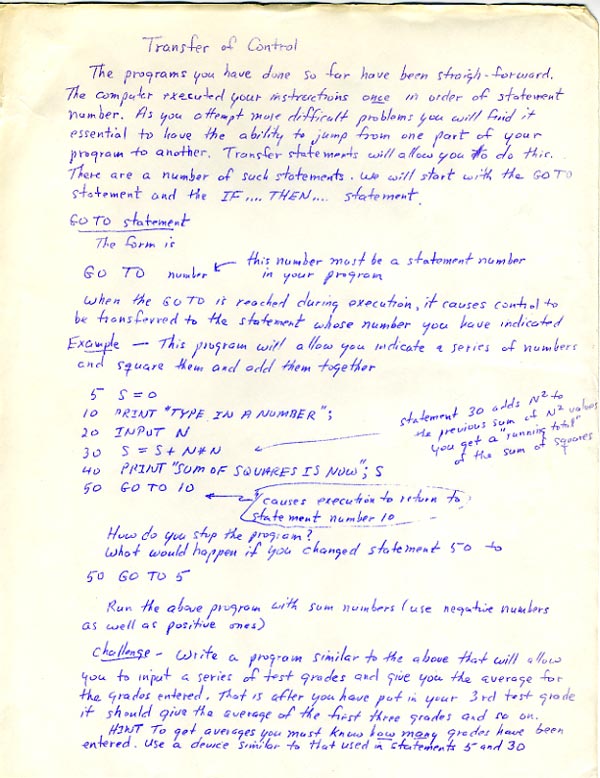 Transfer of Control
The programs you have done so far have been straigh-forward.
The computer executed your instructions once in order of statement
number. As you attempt more difficult problems you will find it
essential to have the ability to jump from one part of your
program to another. Transfer statements will allow you to do this.
There are a number of such statements. We will start with the GO TO
statement and the IF .... THEN .... statement.
GO TO statement
The form is
GO TO number
this number must be a statement number
in your program
When the GO TO is reached during execution, it causes control to
be transferred to the statement whose number you have indicated
Example — This program will allow you indicate a series of numbers
and square them and add them together
5 S = 0
10 PRINT "TYPE IN A NUMBER";
20 INPUT N
30 S = S + N*N
40 PRINT "SUM OF SQUARES IS NOW"; S
50 GO TO 10
statement 30 adds N² to
the previous sum of N² values
you get a "running total"
of the sum of squares
causes execution to return to
statement number 10
How do you stop the program?
What would happen if you changed statement 50 to
50 GO TO 5
Run the above program with sum numbers (use negative numbers
as well as positive ones)
Challenge - Write a program similar to the above that will allow
you to input a series of test grades and give you the average for
the grades entered. That is after you have put in your 3rd test grade
it should give the average of the first three grades and so on.
HINT To get averages you must know how many grades have been
entered. Use a device similar to that used in statements 5 and 30